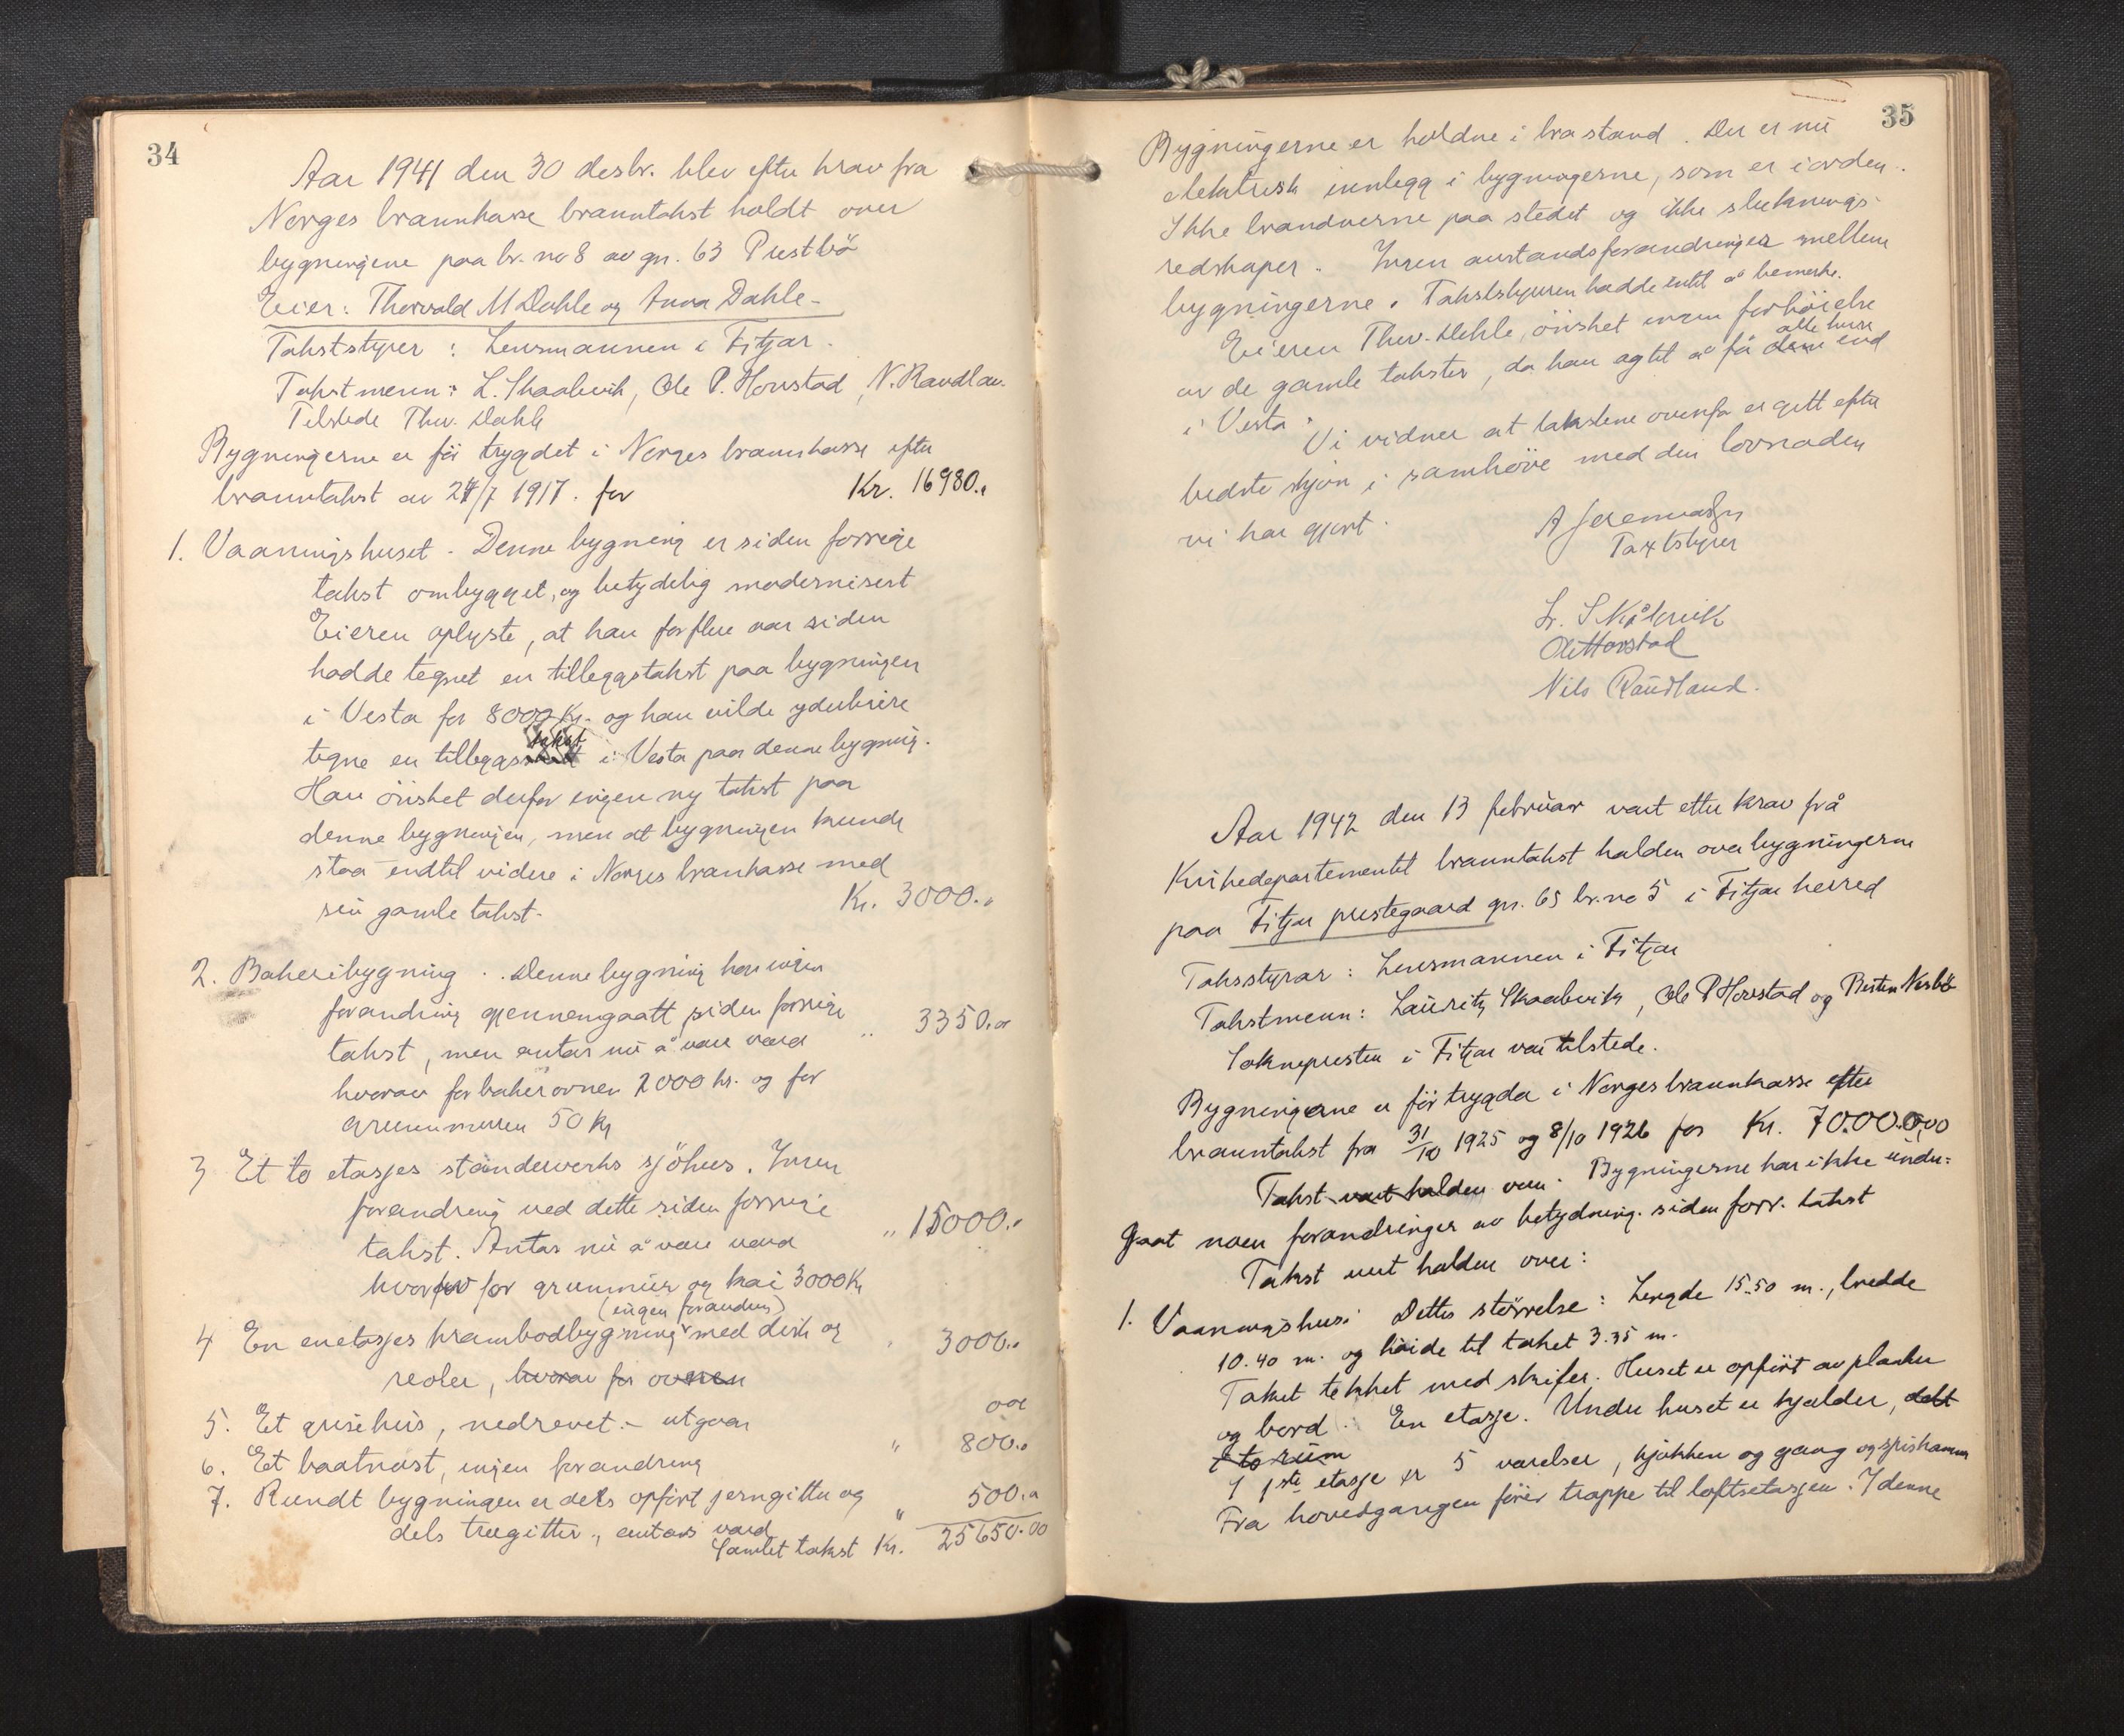 34
Aar 1941 den 30 desbr. blev efter krav fra
Norges brannkasse branntakst holdt over
bygningene paa br. no 8 av gn. 63 Prestbö
Eier: Thorvald M Dahle og Anna Dahle -
Takststyrer : Lensmannen i Fitjar.
Takstmenn : L. Skaalevik, Ole P. Horstad, N. Raudlan.
Tilstede Thv. Dahle
Bygningerne er för trygdet i Norges brannkasse efter
branntakst av 24/7 1917. for Kr. 16980.
1. Vaaningshuset - Denne bygning er siden forrige
takst ombygget, og betydelig modernisert
Eieren oplyste, at han for flere aar siden
hadde tegnet en tilleggstakst paa bygningen
i Vesta for 8000 Kr. og han vilde yderligere
tegne en tilleggstakst i Vesta paa denne bygning.
Han önsket derfor ingen ny takst paa
denne bygningen, men at bygningen kunde
staa indtil videre i Norges brankasse med
sin gamle takst. Kr. 3000.
2. Bakeribygning . Denne bygning har ingen
forandring gjennemgaatt siden forrige
takst, men antas nu å være verd " 3350.00
hvorav for bakerovnen 2000 kr. og for
grunnmuren 50 Kr
3 Et to etasjes stenderverks sjöhus. Ingen
forandring ved dette siden forrige
takst. Antas nu å være verd " 15000.
hvorav for grunnmur og kai 3000 Kr
(ingen forandring)
4 En enetasjes krambodbygning med disk og " 3000.
reoler, hvorav for ovnen
5. Et grisehus, nedrevet. - utgaar 00
6. Et baatnaust, ingen forandring " 800.
7. Rundt bygningen er dels opfört jerngitter og
dels tregitter, antas verd " 500.
Samlet takst Kr. 25650.00
35
Bygningerne er holdne i bra stand. Der er nu
elektrisk innlegg i bygningerne, som er i orden.
Ikke brandverne paa stedet og ikke sluknings-
redskaper. Ingen avstandsforandringer mellem
bygningerne. Takststyreren hadde intet å bemerke.
Eieren Thv. Dahle, önsket ingen forhöielse
av de gamle takster, da han agtet å få dem alle huse ind
i Vesta.
Vi vidner at takstene ovenfor er gitt efter
bedste skjön i samhöve med den lovnaden
vi har gjort.
Taxtstyrer
L. Skålevik
Ole Horstad
Nils Raudland.
Aar 1942 den 13 februar vart etter krav frå
Kirkedepartementet branntakst halden over bygningerne
paa Fitjar prestegaard gn. 65 br. no 5 i Fitjar herred
Takststyrar : Lensmannen i Fitjar
Takstmenn: Lauritz Skaalevik, Ole P Horstad og Nesbö
Soknepresten i Fitjar var tilstede.
Bygningerne er för trygda i Norges brannkasse efter
branntakst fra 31/10 1925 og 8/10 1926 for Kr. 70.000,00
Takst vart halden over. Bygningerne har ikke under-
gaat noen forandringer av betydning siden forr. takst
Takst vert halden over:
1. Vaaningshus: Dettes störrelse : Lengde 15.50 m., bredde
10.40 m. og höide til taket 3.35 m.
Taket tekket med skifer. Huset er opfört av planker
og bord. En etasje. Under huset er kjelder, delt
i to rum
I 1ste etasje er 5 værelser, kjökken og gang og spiskammer
Fra hovedgangen förer trappe til loftsetasjen. I denne